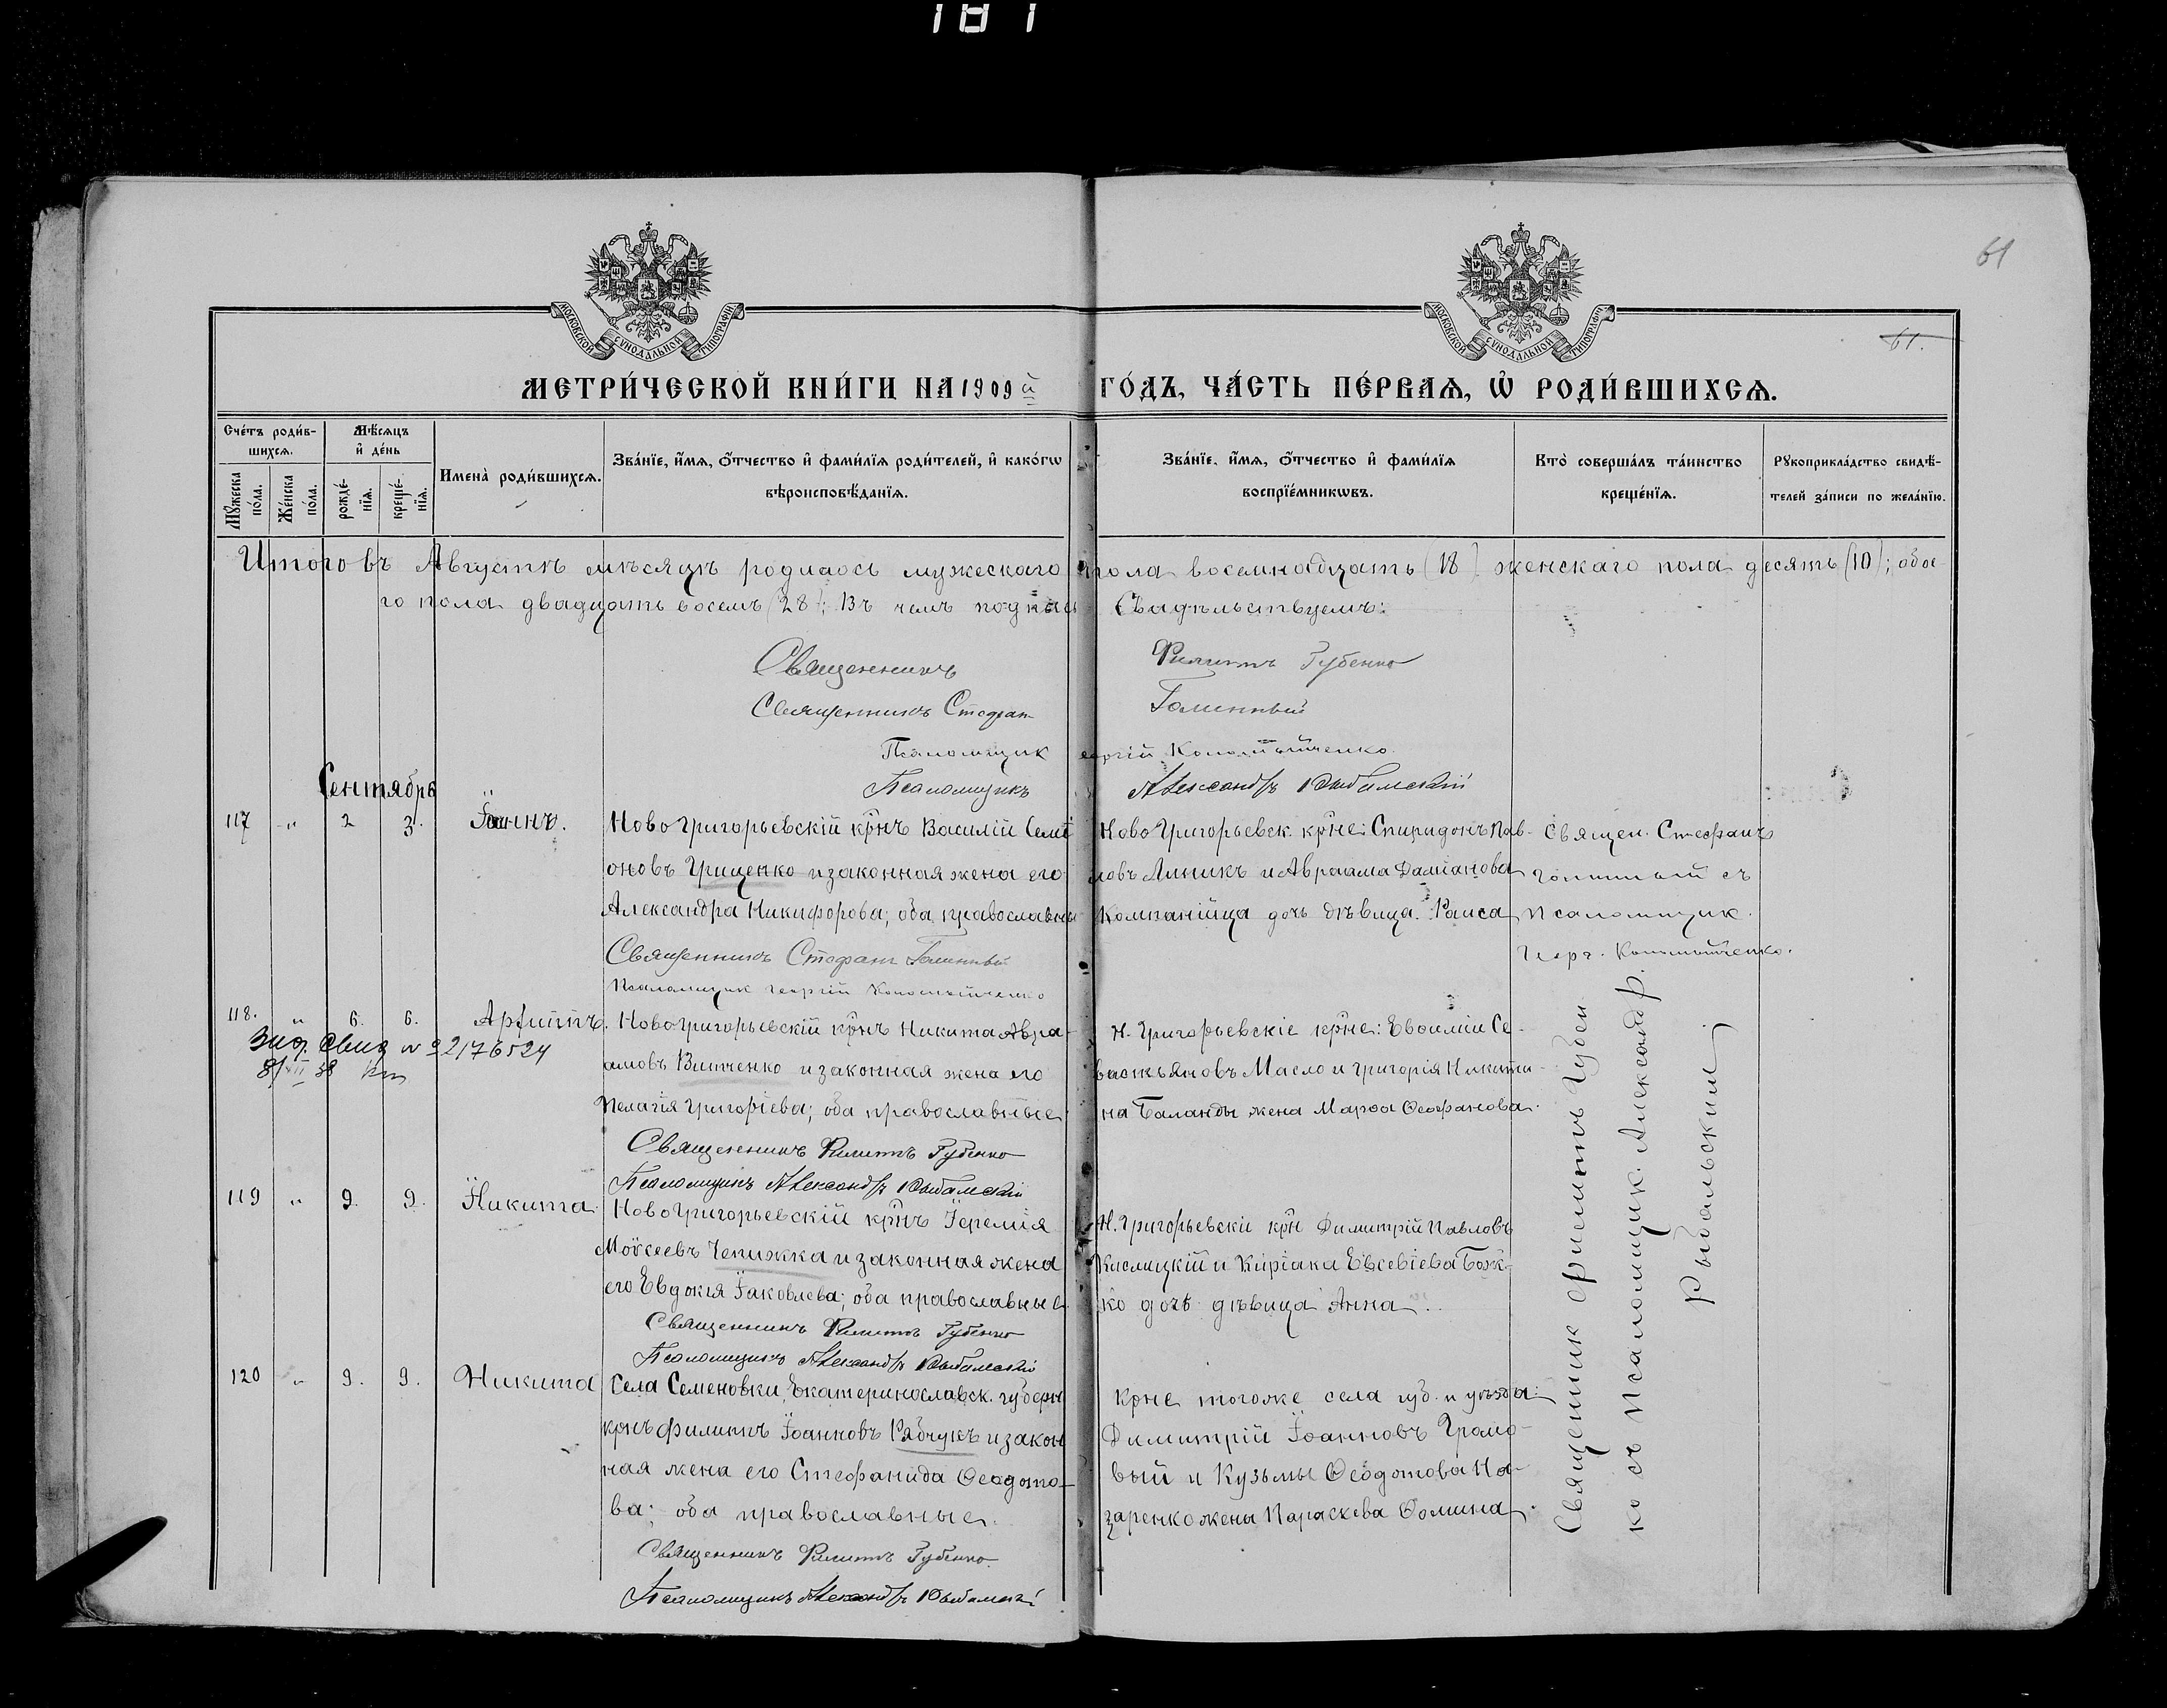 181
61
61.
МОСКОВСКОЙ СУНОДАЛЬНОЙ ТИПОГРАФІИ
МОСКОВСКОЙ СУНОДАЛЬНОЙ ТИПОГРАФІИ
МЕТРИ́ЧЕСКОЙ КНИ́ГИ НА 1909 й ГО́ДЪ, ЧА́СТЬ ПЕ́РВАѦ, Ѽ РОДИ́ВШИХСѦ.
Сче́тъ роди́в-
шихсѧ.
Мꙋ́жеска по́ла.
Же́нска по́ла.
Мѣ́сѧцъ
и҆ де́нь
рожде́-
нїѧ.
креще́-
нїѧ.
Имена̀ роди́вшихсѧ.
Зва́нїе, и҆́мѧ, ѻ҆́тчество и҆ фами́лїѧ роди́телей, и҆ како́гѡ
вѣроисповѣ́данїѧ.
Зва́нїе, и҆́мѧ, ѻ҆́тчество и҆ фами́лїѧ
воспрїе́мникѡвъ.
Кто̀ соверша́лъ та́инство
креще́нїѧ.
Рꙋкоприкла́дство свидѣ́-
телей за́писи по жела́нїю.
Итого въ Августѣ мѣсяцѣ родилось мужескаго пола восемнадцать (18) женскаго пола десять (10); обое-
го пола двадцать восемь (28); Въ чемъ Свидѣтельствуемъ:
Священникъ Филиппъ Губенко
Священникъ Стефан Голинный
Псаломщик Георгій Коломыйченко
Псаломщикъ Александръ Рыбальскій
Сентябрь
117 " 2 3. Іоаннъ.
Ново Григорьевскій крнъ Василій Семе-
оновъ Грищенко и законная жена его
Александра Никифорова; оба православны
Священникъ Стефан Голинный
Псаломщик Георгій Коломыйченко
Ново Григорьевск. крне: Спиридонъ Пав-
ловъ Линикъ и Авраама Даміанова
Компанійца дочь дѣвица Раиса
Священ. Стефанъ
Голинный съ
псаломщик.
Георг. Коломыйченко.
118. " 6. 6. Архиппъ.
Выд. Свид № 2176524
8/VII 38
Ново Григорьевскій крнъ Никита Авра-
амовъ Винченко и законная жена его
Пелагія Григоріева; оба православные
Священникъ Филиппъ Губенко
Псаломщикъ Александръ Рыбальскій
Н. Григорьевскіе крне: Евѳимій Се-
вастьяновъ Масло и Григорія Никити-
на Баланды жена Марѳа Ѳеофанова.
119 " 9. 9. Никита
Ново Григорьевскій крнъ Іеремія
Моѵсеевъ Чепижка и законная жена
его Евдокія Іаковлева; оба православные
Священникъ Филиппъ Губенко
Псаломщикъ Александръ Рыбальскій
Н. Григорьевскіе крн Димитрій Павловъ
Кислицкій и Киріака Евсевіева Бож-
ко дочь дѣвица Анна.
120 " 9. 9. Никита
Села Семеновки, Екатеринославск. губерн
крнъ Филиппъ Іоанновъ Рябчукъ и закон
ная жена его Стефанида Ѳеодото-
ва; оба православные.
Священникъ Филиппъ Губенко
Псаломщикъ Александръ Рыбальскій
Крне тогоже села губ. и уѣзда:
Димитрій Іоанновъ Громо-
вый и Кузьмы Ѳеодотова На-
заренко жена Параскева Ѳомина.
Священник Филиппъ Губен
ко съ Псаломщик. Александр.
Рыбальским.